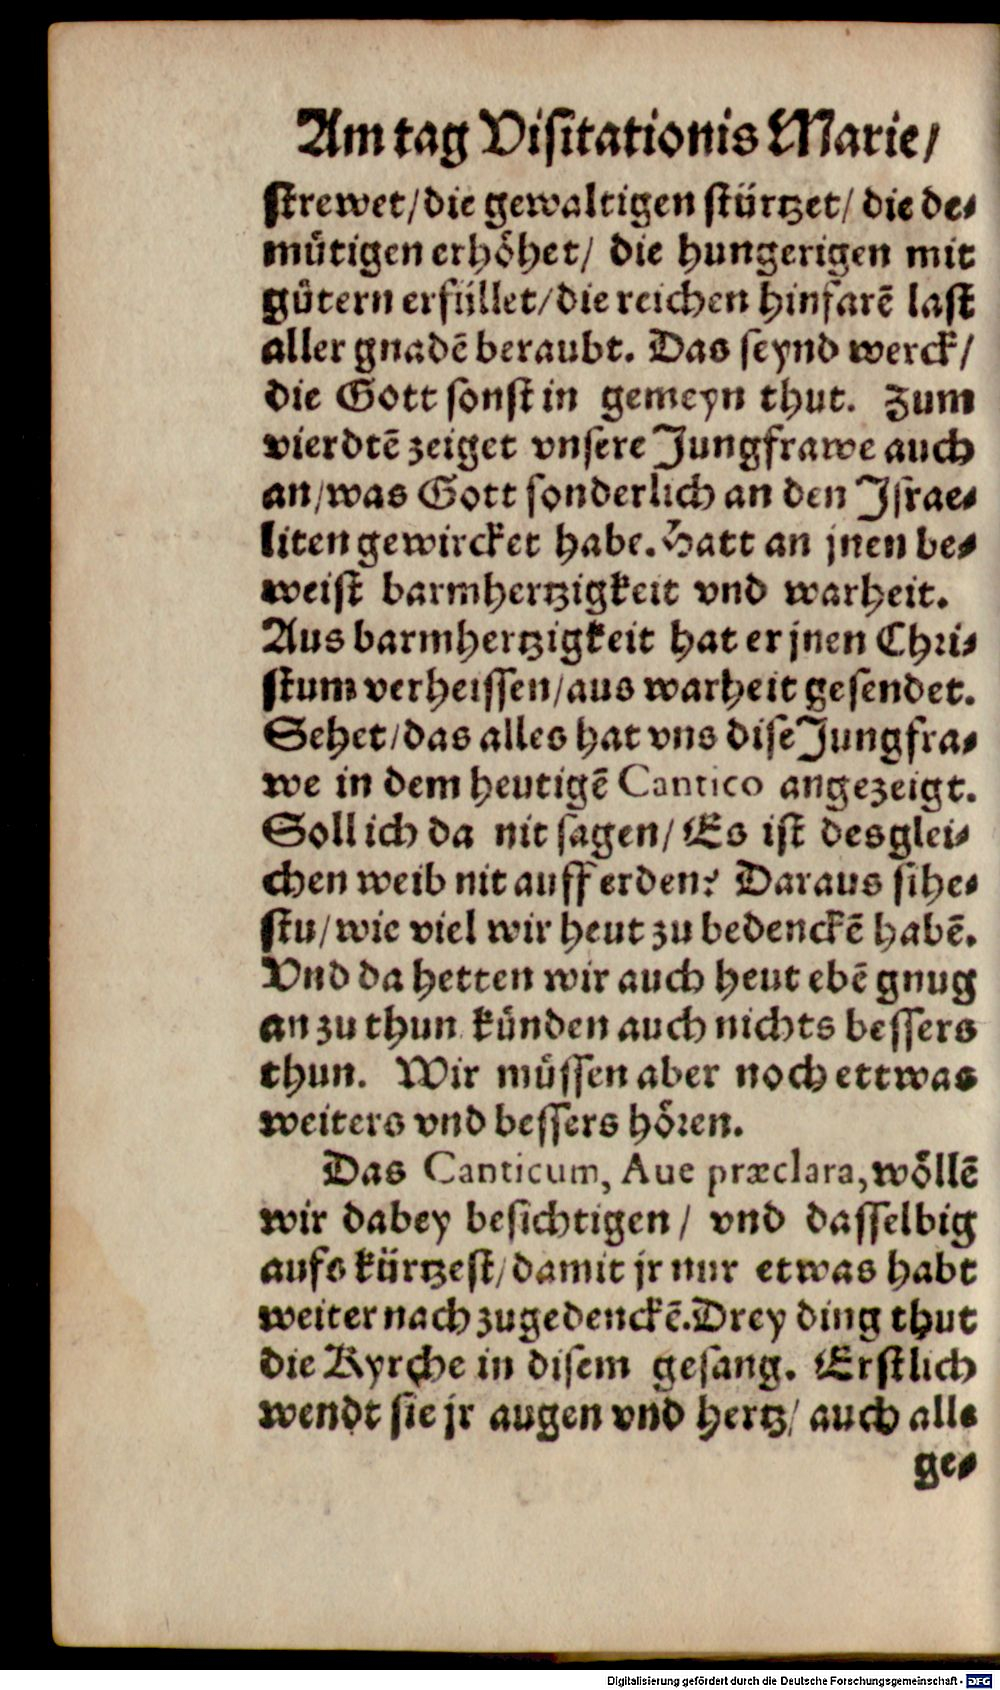 Am tag Visitationis Marie/
strewet/die gewaltigen stürtzet/ die de⸗
mütigen erhöhet/ die hungerigen mit
gütern erfüllet/die reichen hinfarē last
aller gnadē beraubt. Das seynd werck/
die Gott sonst in gemeyn thut. Zum
vierdtē zeiget vnsere Jungfrawe auch
an/was Gott sonderlich an den Israe⸗
liten gewircket habe. Hatt an jnen be⸗
weist barmhertzigkeit vnd warheit.
Aus barmhertzigkeit hat er jnen Chri⸗
stum verheissen/aus warheit gesendet.
Sehet/das alles hat vns dise Jungfra⸗
we in dem heutigē Cantico angezeigt.
Soll ich da nit sagen/ Es ist desglei⸗
chen weib nit auff erden? Daraus sihe⸗
stu/wie viel wir heut zu bedenckē habē.
Vnd da hetten wir auch heut ebē gnug
an zu thun künden auch nichts bessers
thun. Wir müssen aber noch ettwas
weiters vnd bessers hören.
Das Canticum, Aue præclara, wöllē
wir dabey besichtigen/ vnd dasselbig
aufs kürtzest/damit jr nur etwas habt
weiter nach zugedenckē. Drey ding thut
die Kyrche in disem gesang. Erstlich
wendt sie jr augen vnd hertz/ auch alle
ge⸗
Digitalisierung gefördert durch die Deutsche Forschungsgemeinschaft - DFG